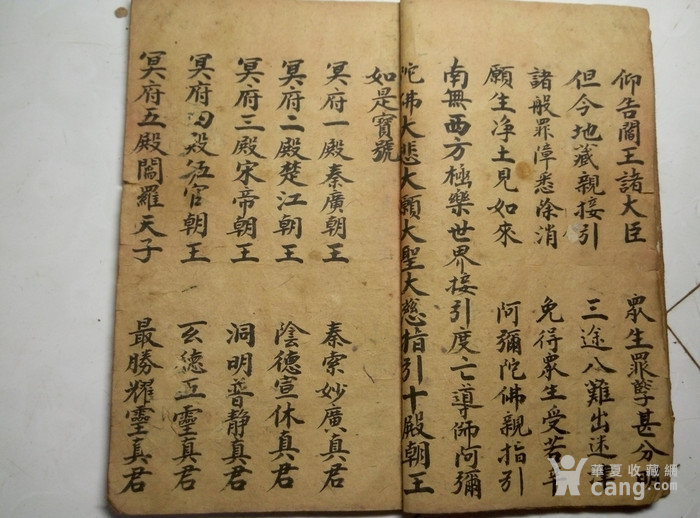 仰告閻王諸大臣 衆生罪孽甚分明
但今地藏親接引 三途八難出迷津
諸般罪障悉除消 免得眾生受苦辛
願生净土見如來 阿彌陀佛親指引
南無西方極樂世界接引度亡導師阿彌
陀佛大悲大願大聖大慈指引十殿朝王
如是寶號
冥府一殿秦廣朝王 秦索妙廣真君
冥府二殿楚江朝王 陰德宣休真君
冥府三殿宋帝朝王 洞明普静真君
冥府四殿伍官朝王 玄德五靈真君
冥府五殿閻羅天子 最勝耀靈真君
華夏收藏網
cang.com